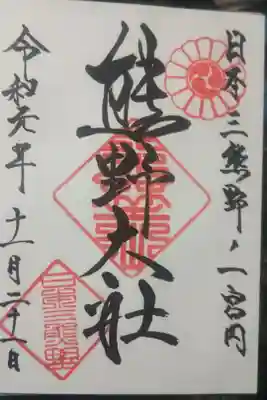 日本三熊野ノ一宮内
熊野大社
令和元年十一月二十一日